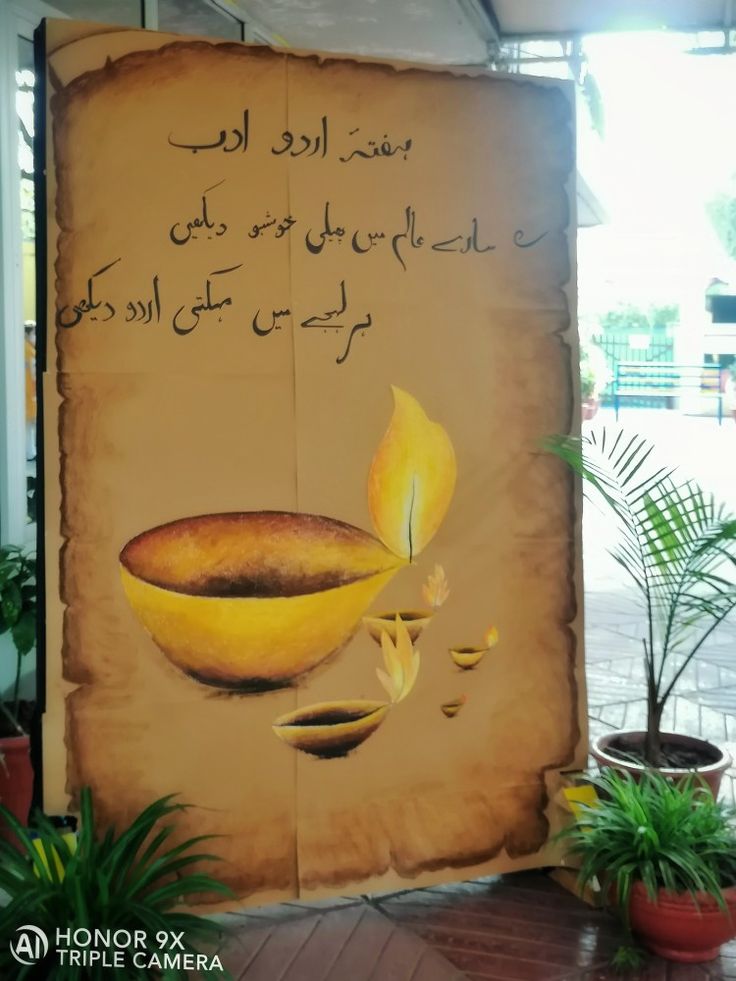 ہفتۂ اردو ادب
سارے عالم میں پھیلی خوشبو دیکھیں
ہر لہجے میں مہکتی اُردو دیکھیں
AI HONOR 9X
TRIPLE CAMERA